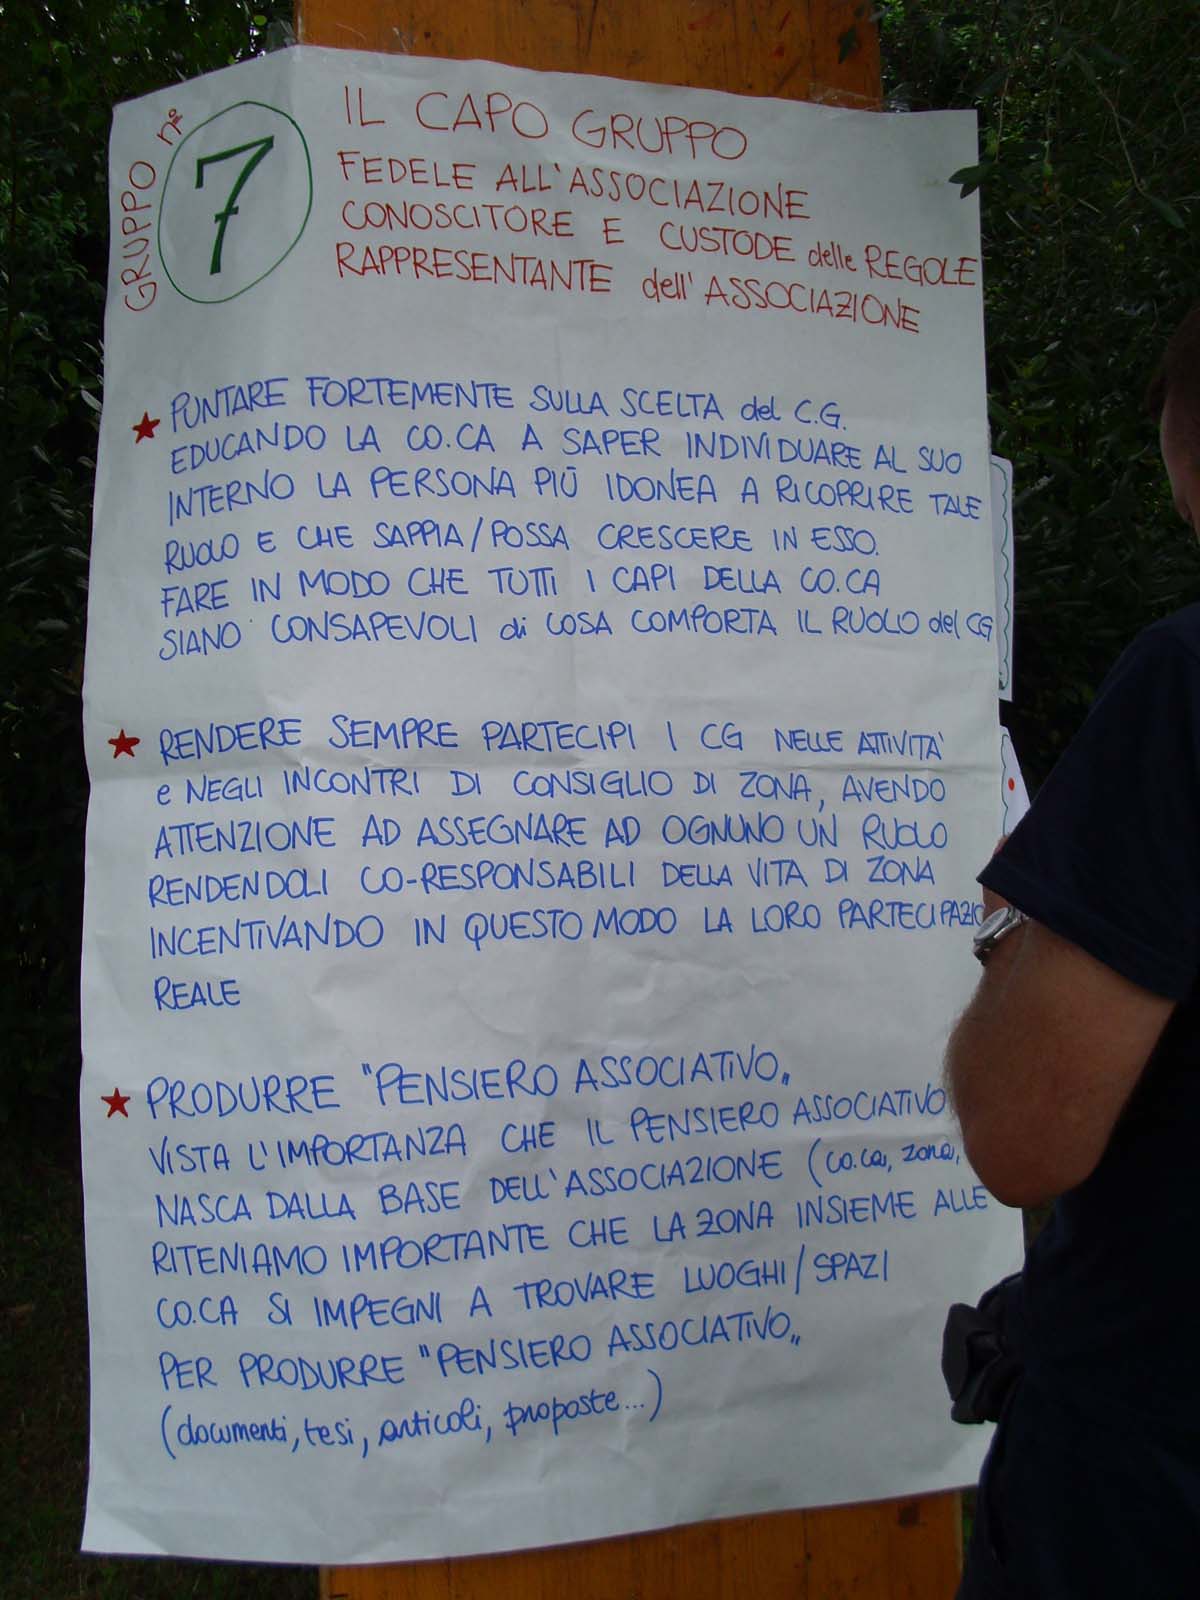 GRUPPO n°
7
IL CAPO GRUPPO
FEDELE ALL'ASSOCIAZIONE
CONOSCITORE E CUSTODE delle REGOLE
RAPPRESENTANTE dell'ASSOCIAZIONE
★ PUNTARE FORTEMENTE SULLA SCELTA del C.G.
EDUCANDO LA CO.CA A SAPER INDIVIDUARE AL SUO
INTERNO LA PERSONA PIÙ IDONEA A RICOPRIRE TALE
RUOLO E CHE SAPPIA/POSSA CRESCERE IN ESSO.
FARE IN MODO CHE TUTTI I CAPI DELLA CO.CA
SIANO CONSAPEVOLI di COSA COMPORTA IL RUOLO del CG
★ RENDERE SEMPRE PARTECIPI I CG NELLE ATTIVITA'
e NEGLI INCONTRI DI CONSIGLIO DI ZONA, AVENDO
ATTENZIONE AD ASSEGNARE AD OGNUNO UN RUOLO
RENDENDOLI CO-RESPONSABILI DELLA VITA DI ZONA
INCENTIVANDO IN QUESTO MODO LA LORO PARTECIPAZIO
REALE
★ PRODURRE "PENSIERO ASSOCIATIVO"
VISTA L'IMPORTANZA CHE IL PENSIERO ASSOCIATIVO
NASCA DALLA BASE DELL'ASSOCIAZIONE (co.ca, zona,
RITENIAMO IMPORTANTE CHE LA ZONA INSIEME ALLE
CO.CA SI IMPEGNI A TROVARE LUOGHI/SPAZI
PER PRODURRE "PENSIERO ASSOCIATIVO"
(documenti, tesi, articoli, proposte...)